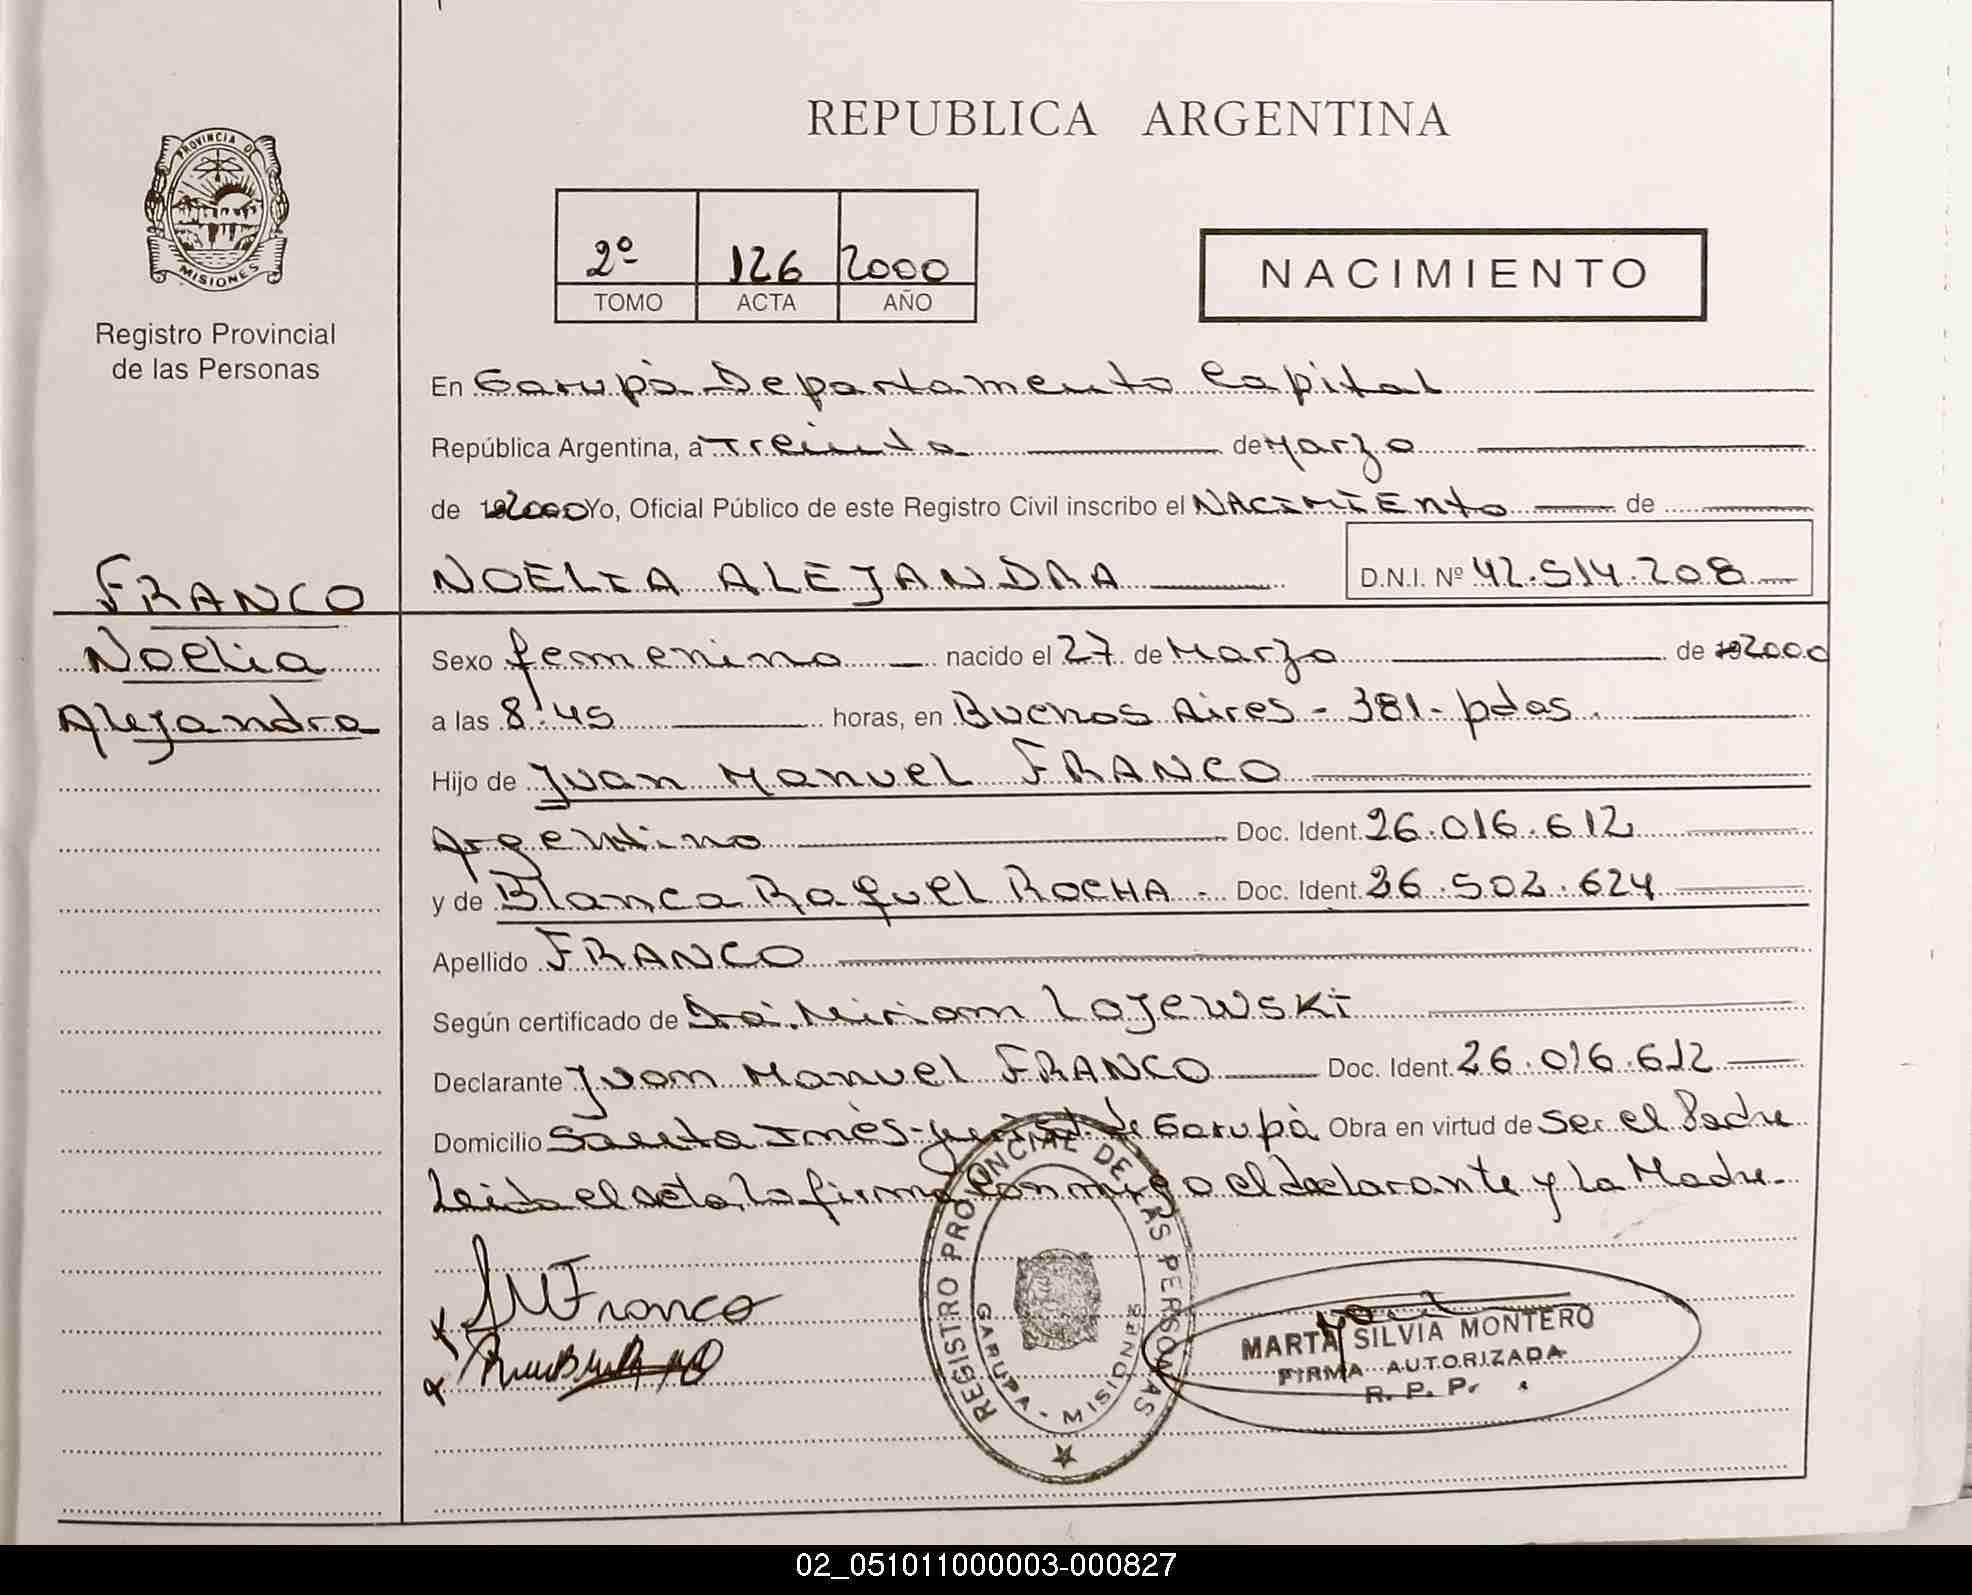 PROVINCIA DE
MISIONES
Registro Provincial
de las Personas
FRANCO
Noelia
Alejandra
REPUBLICA ARGENTINA
2º 126 2000
TOMO ACTA AÑO
NACIMIENTO
En Garupà Departamento Capital
República Argentina, a Treinta de Marzo
de 192000 Yo, Oficial Público de este Registro Civil inscribo el NACIMIENTO de
NOELIA ALEJANDRA D.N.I. Nº 42.514.208
Sexo femenino nacido el 27 de Marzo de 192000
a las 8:45 horas, en Buenos Aires - 381 - pdas.
Hijo de Juan Manuel FRANCO
Argentino Doc. Ident. 26.016.612
y de Blanca Raquel ROCHA - Doc. Ident. 26.502.624
Apellido FRANCO
Según certificado de Dra. Miriam Lojewski
Declarante Juan Manuel FRANCO Doc. Ident. 26.016.612
Domicilio Santa Inés - de Garupà Obra en virtud de Ser el Padre
Leida el acta, la firma conmigo el declarante y la Madre.
JMFranco
REGISTRO PROVINCIAL DE LAS PERSONAS
GARUPA - MISIONES
MARTA SILVIA MONTERO
FIRMA AUTORIZADA
R. P. P.
02_051011000003-000827